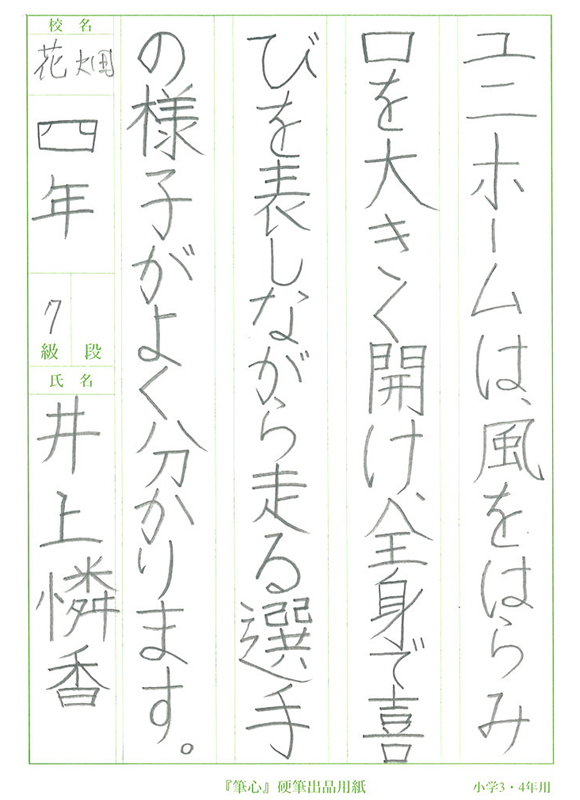 ユニホームは、風をはらみ
口を大きく開け、全身で喜
びを表しながら走る選手
の様子がよく分かります。
校名
花畑
四年
7
級 段
氏名
井上憐香
『筆心』硬筆出品用紙
小学3・4年用